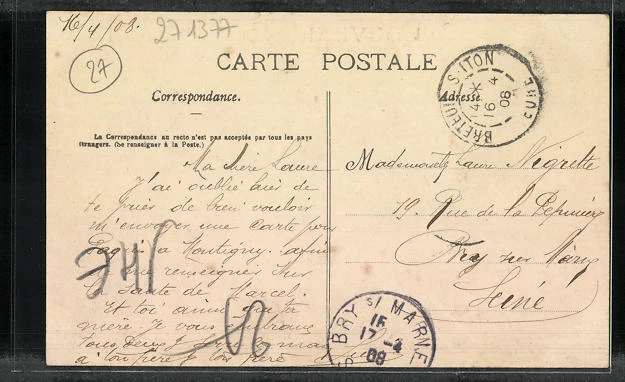 16/4/08.
271377
27
CARTE POSTALE
Correspondance.
Adresse
La Correspondance au recto n'est pas acceptée par tous les pays
étrangers. (Se renseigner à la Poste.)
BRETEUIL S. ITON
4 *
16 4
08
EURE
Ma chère Laure
J'ai oublié hier de
te prier de bien vouloir
m'envoyer une carte pour
Montigny. afin
me renseigner sur
la Santé de Marcel.
Et toi ainsi que ta
mère je vous embrasse
tous deux
à ton père
Mademoiselle Laure Négrette
79. Rue de la Pépinière
Bry sur Marne
Seine
BRY s/ MARNE
15
17 -4
08